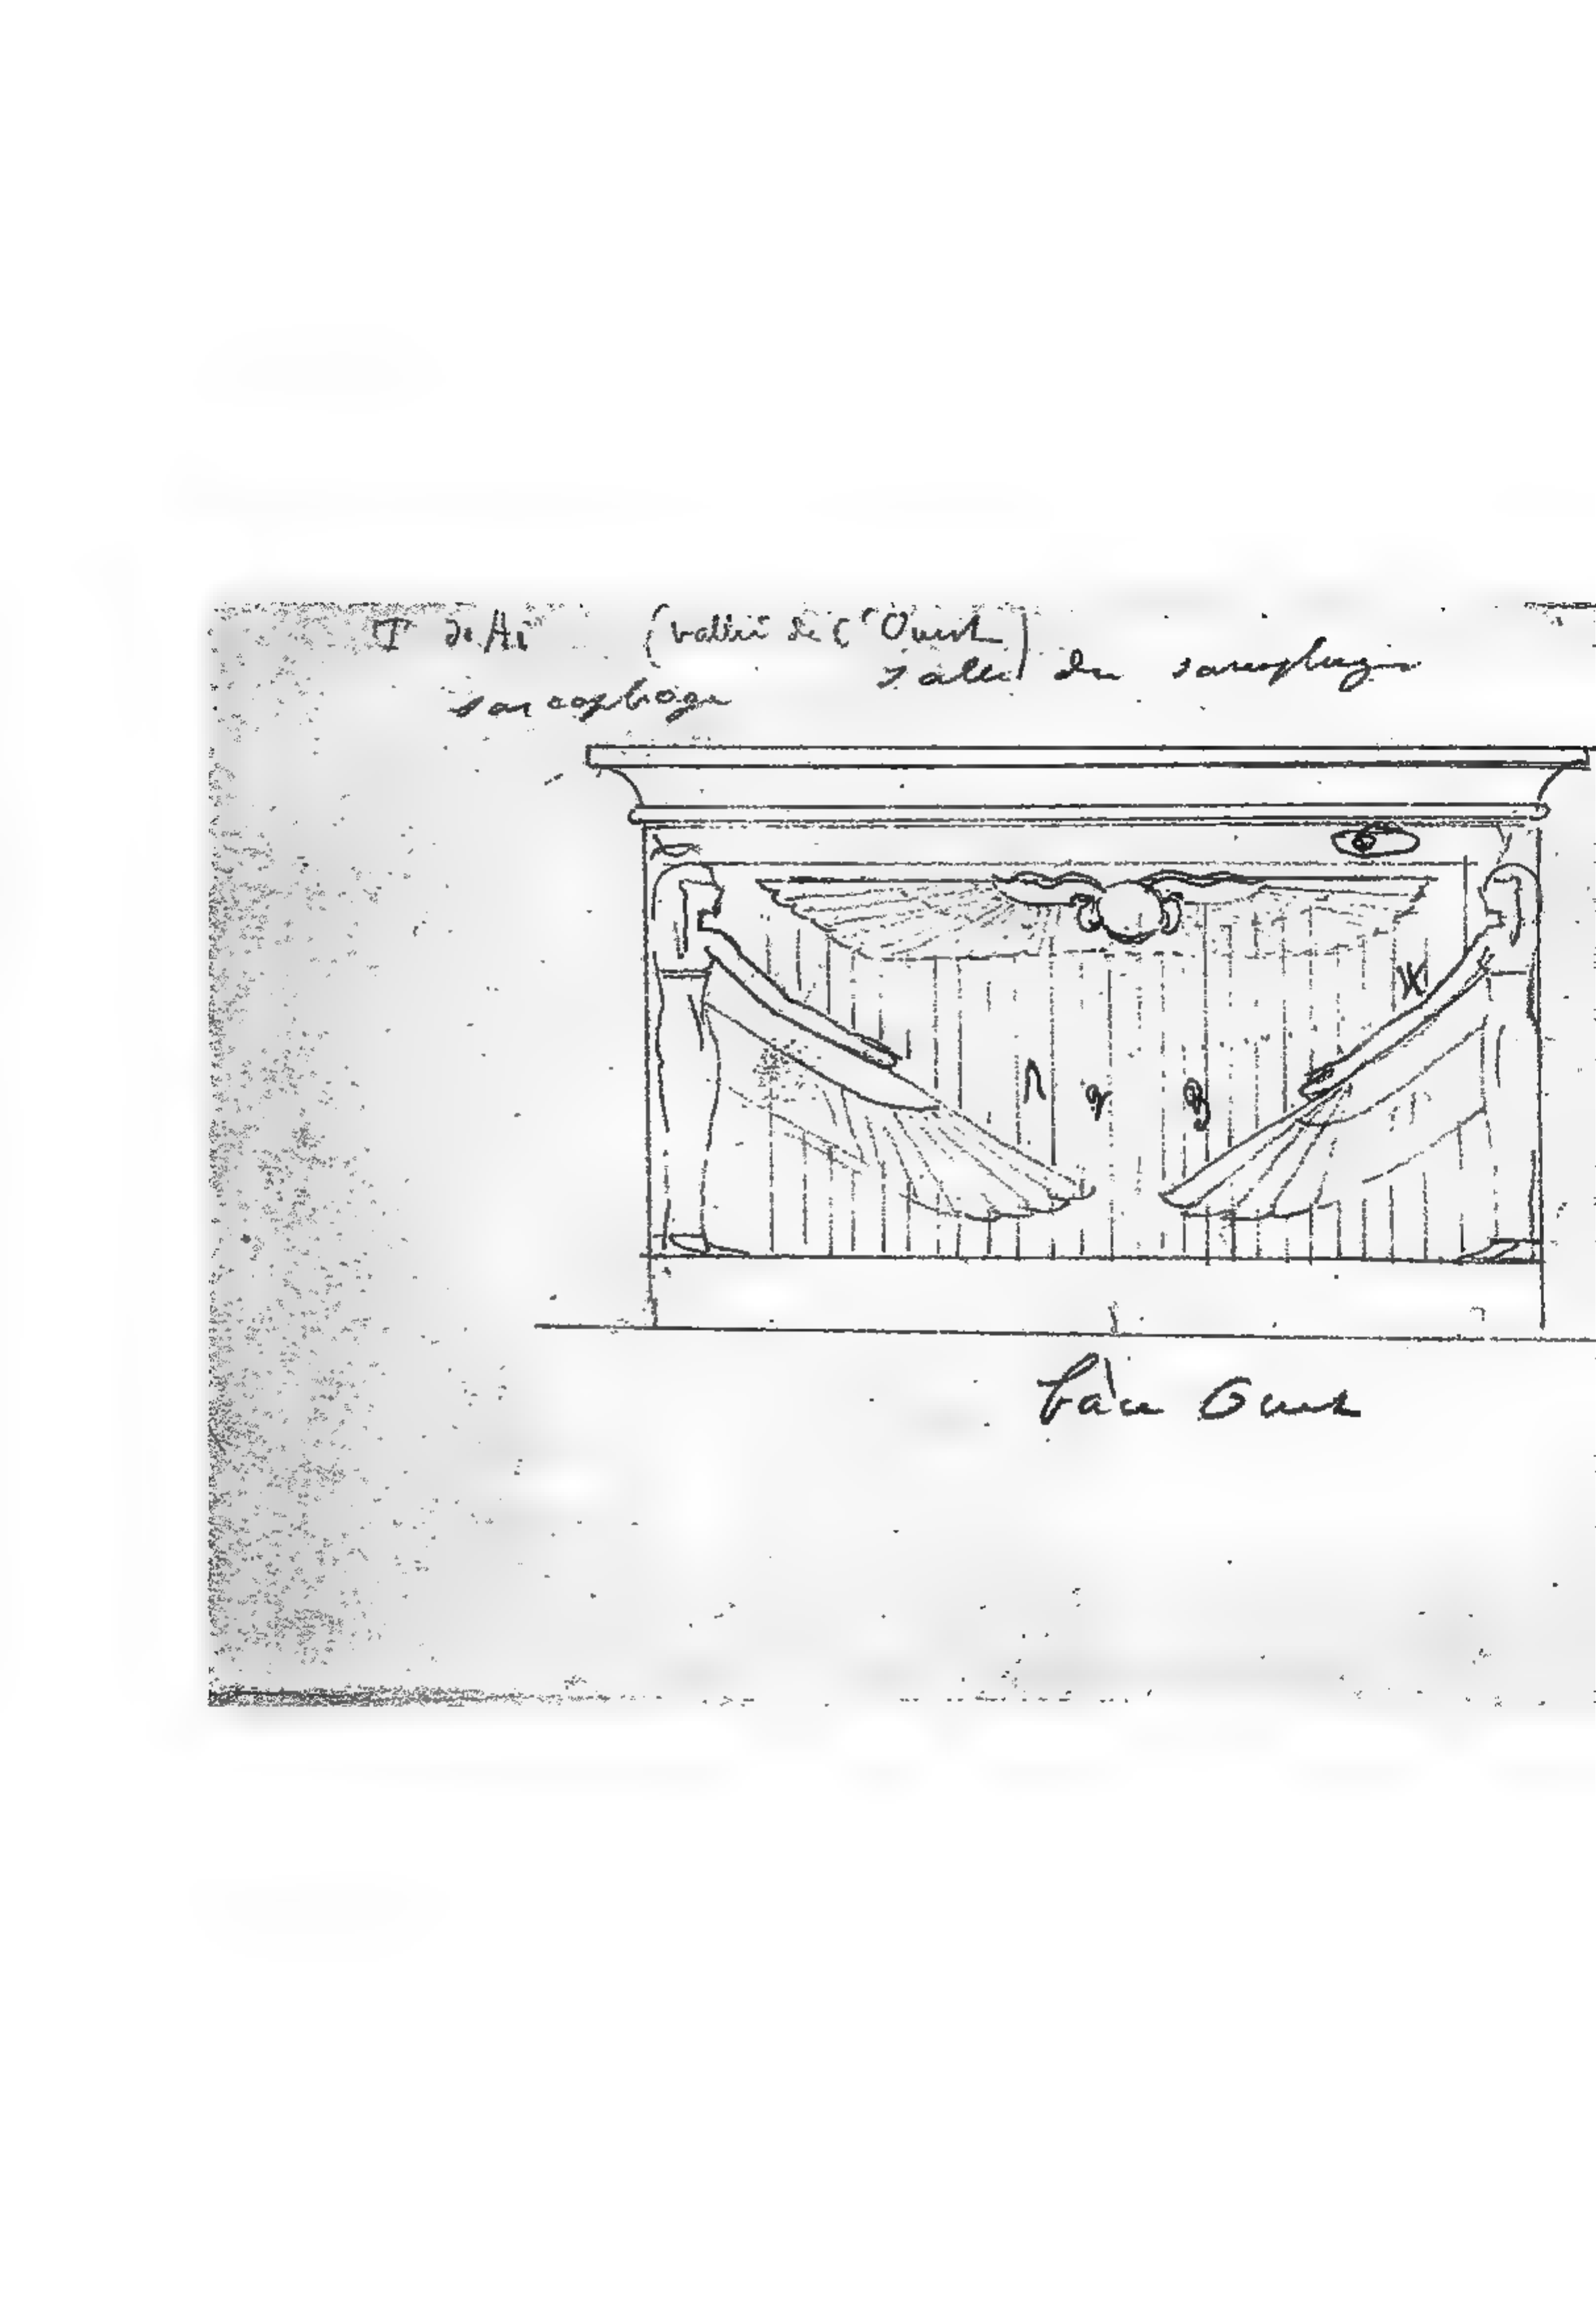 T de Aï (Vallée de l'Ouest)
salle du sarcophage
sarcophage
face Ouest